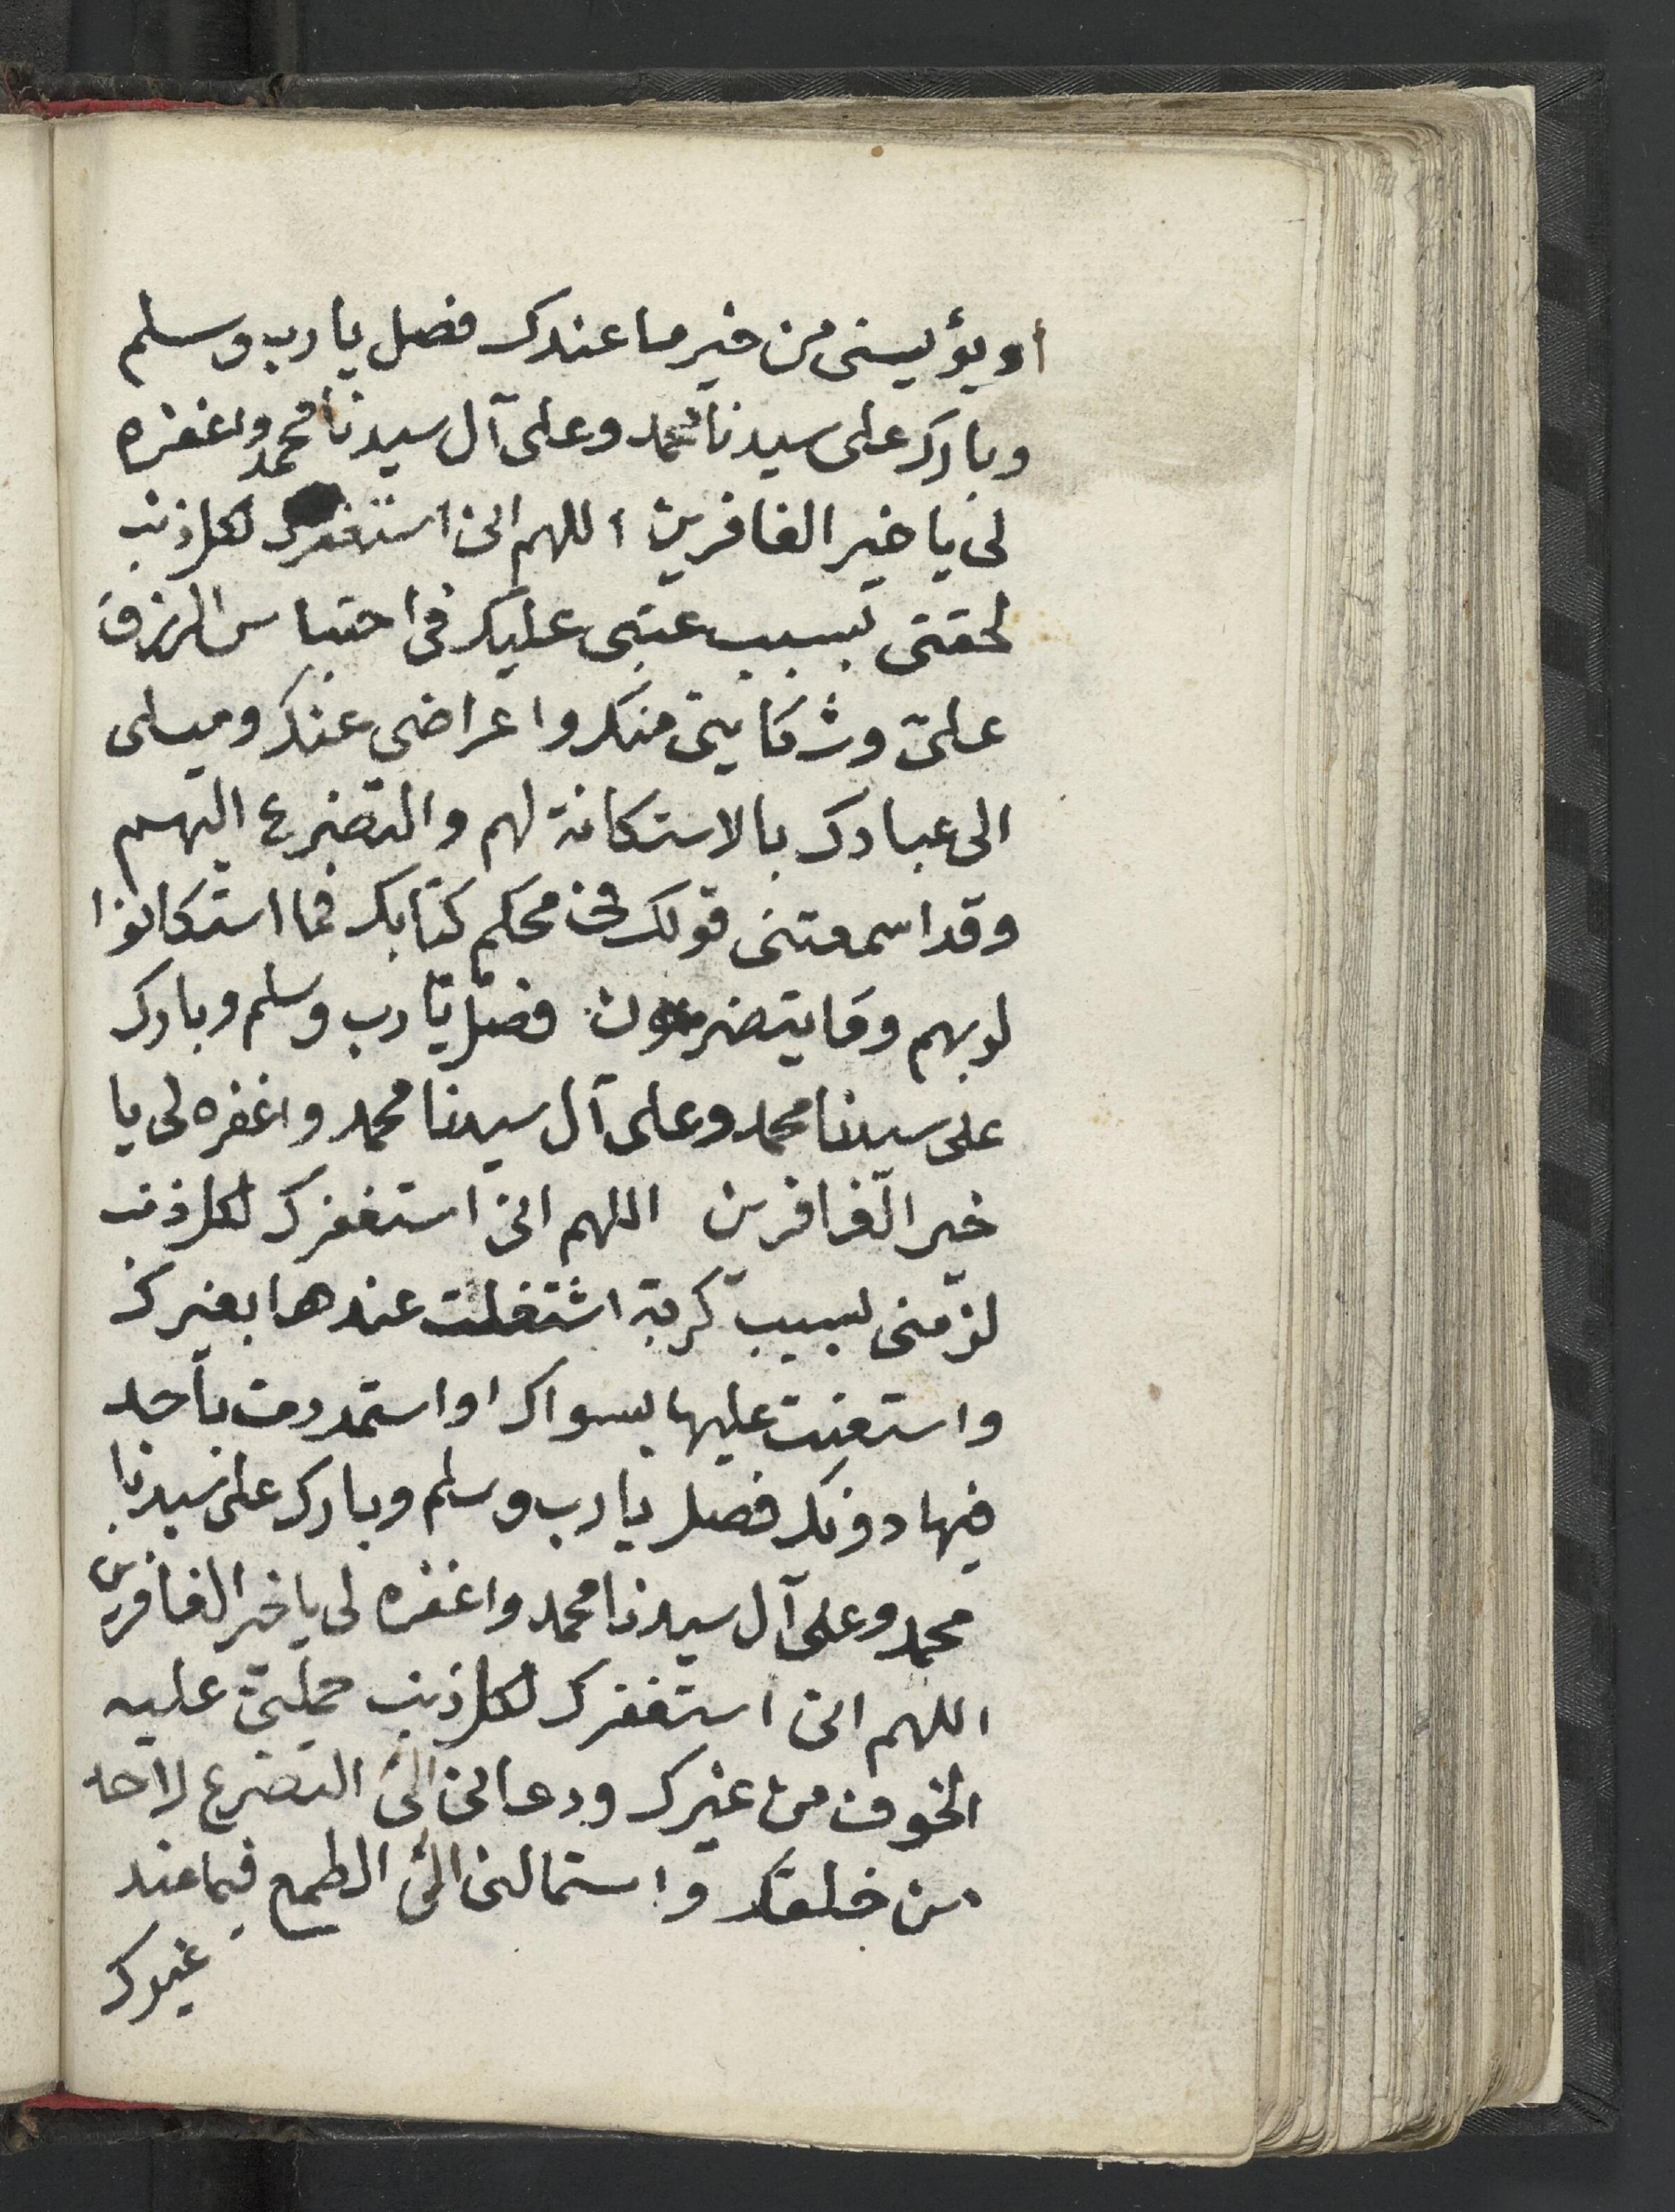 أو يؤيسنى من خير ما عندك فصل يا رب وسلم
وبارك على سيدنا محمد وعلى آل سيدنا محمد واغفره
لى يا خير الغافرين اللهم انى استغفرك لكل ذنب
لحقنى بسبب عتبى عليك فى احتباس الرزق
علىّ وشكايتى منك واعراضى عنك وميلى
الى عبادك بالاستكانة لهم والتضرع اليهم
وقد اسمعتنى قولك فى محكم كتابك فما استكانوا
لربهم وما يتضرعون فصل يا رب وسلم وبارك
على سيدنا محمد وعلى آل سيدنا محمد واغفره لى يا
خير الغافرين اللهم انى استغفرك لكل ذنب
لزمنى بسبب كربة اشتغلت عندها بغيرك
واستعنت عليها بسواك او استمددت بأحد
فيها دونك فصل يا رب وسلم وبارك على سيدنا
محمد وعلى آل سيدنا محمد واغفره لى يا خير الغافرين
اللهم انى استغفرك لكل ذنب حملنى عليه
الخوف من غيرك ودعانى الى التضرع لاحد
من خلقك واستمالنى الى الطمع فيما عند
غيرك